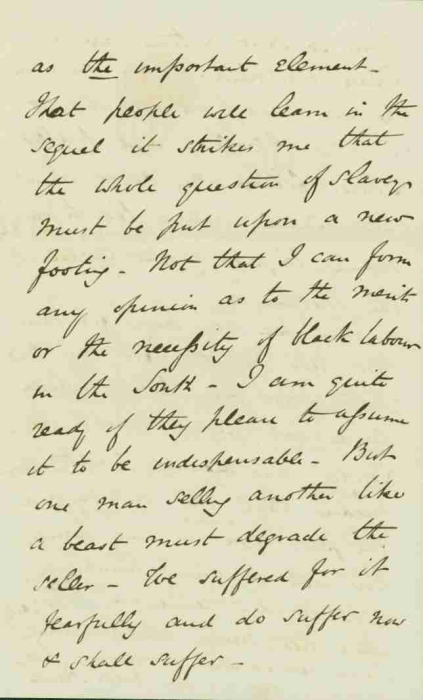 as the important element -
What people will learn in the
sequel it strikes me that
the whole question of slavery
must be put upon a new
footing - Not that I can form
any opinion as to the merits
or the necessity of black labour
in the South - I am quite
ready if they please to assume
it to be indispensable - But
one man selling another like
a beast must degrade the
seller - We suffered for it
fearfully and do suffer now
& shall suffer -